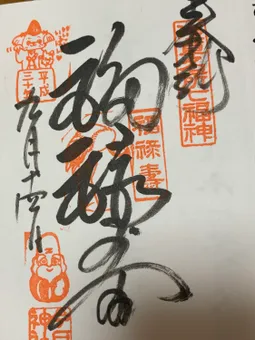 奉拝
七福神
福禄寿
福禄寿
平成
三十
九月十四日